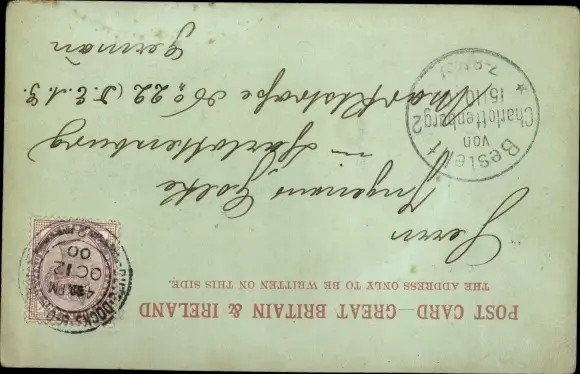 POST CARD—GREAT BRITAIN & IRELAND
THE ADDRESS ONLY TO BE WRITTEN ON THIS SIDE.
Herrn
Ingenieur Goltz
in Charlottenburg
Marktstraße No 22 (T.E.A.G.
German
4.30 PM
OC 12
00
DOCKS
Bestellt
von
Charlottenburg 2
15.10.
7-8